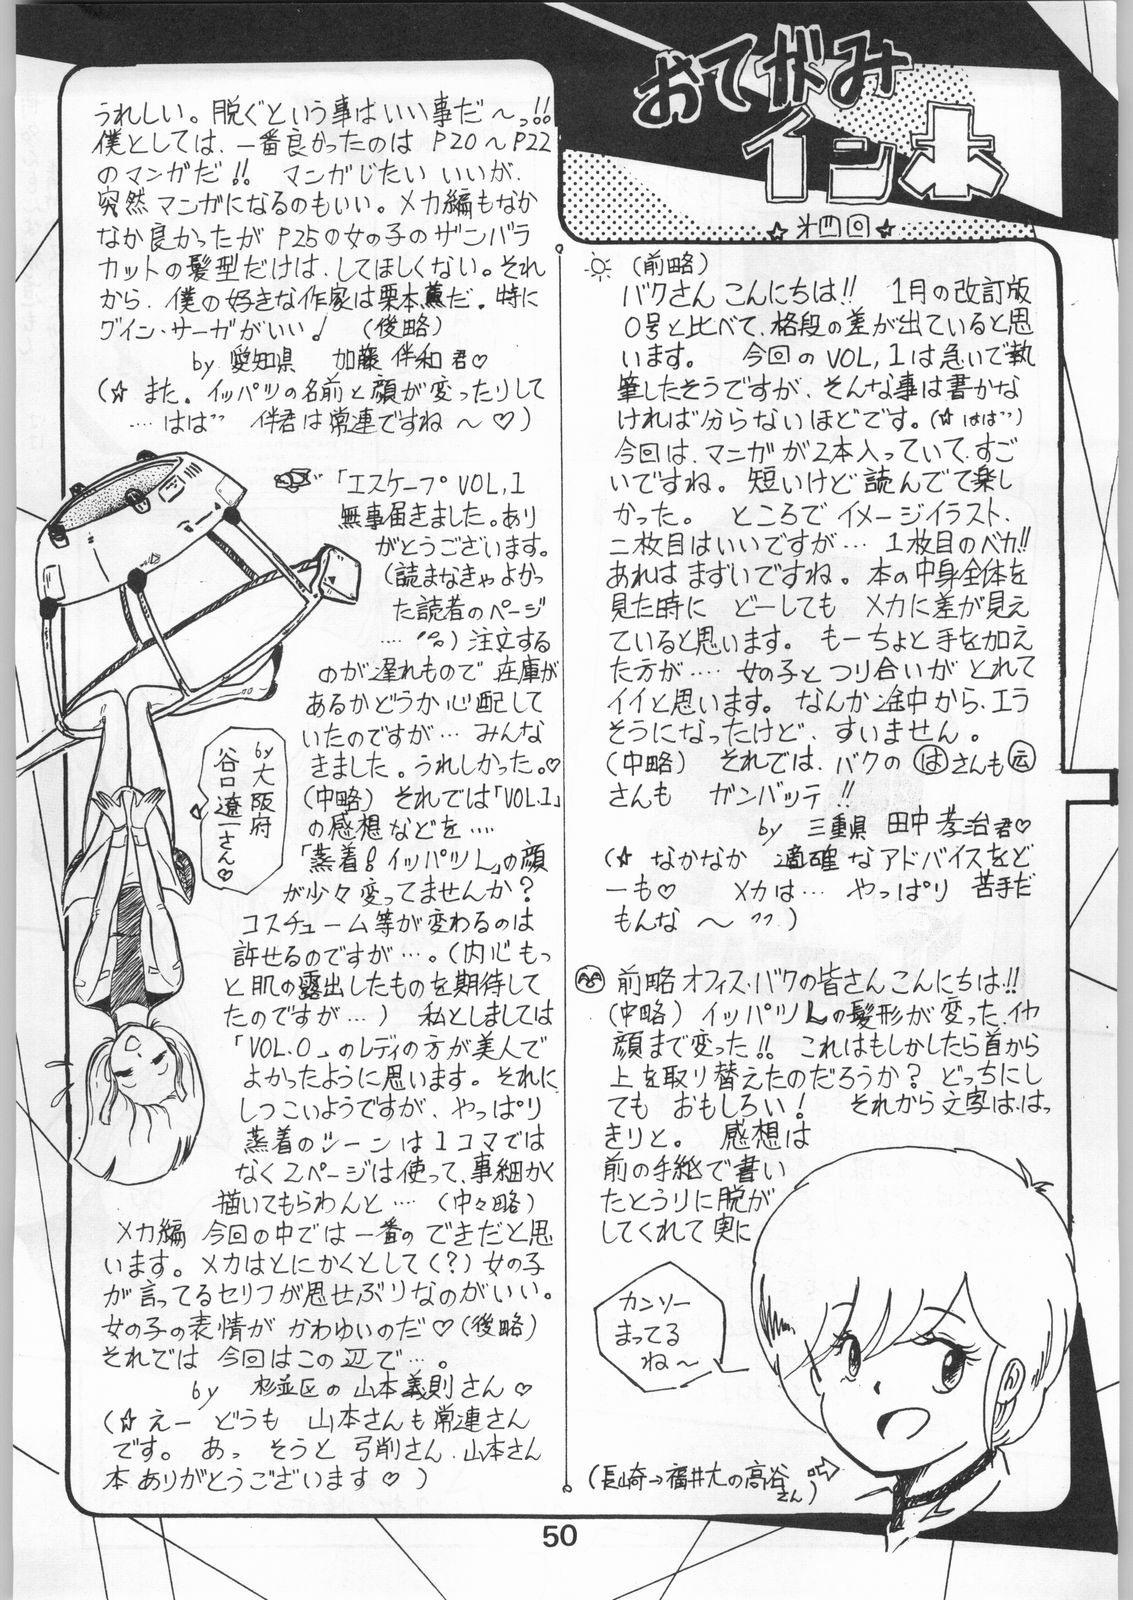 おてがみ
イン本
☆才四回☆
(前略)
バクさん こんにちは!! 1月の改訂版
0号と比べて、格段の差が出ていると思
います。 今回のVOL,1は急いで執
筆したそうですが、そんな事は書かな
ければ分らないほどです。(☆はは〃)
今回は、マニガが2本入っていて、すご
いですね。短いけど読んでて楽し
かった。 ところでイメージイラスト、
二枚目はいいですが… 1枚目のベカ!!
あれはまずいですね。本の中身全体を
見た時に どーしても メカに差が見え
ていると思います。もーちょと手を加え
た方が‥‥女の子とつり合いが とれて
イイと思います。なんか途中から、エラ
そうになったけど、すいません。
(中略) それでは、バクの はさんも 云
さんも ガンバッテ!!
by 三重県 田中孝治君♡
(☆ なかなか 適確なアドバイスをど
ーも♡ メカは… やっぱり 苦手だ
もんな～〃)
前略オフィス・バクの皆さんこんにちは!!
(中略) イッパツLの髪形が変った、イヤ
顔まで変った!! これはもしかしたら首から
上を取り替えたのだろうか? どっちにし
ても おもしろい! それから文字は、はっ
きりと。 感想は
前の手紙で書い
たとうりに脱が
してくれて実に
カンソー
まってる
ね～
(長崎→福井大の高谷
さん)
うれしい。脱ぐという事はいい事だ～っ!!
僕としては、一番良かったのは P20～P22
のマンガだ!! マンガじたい いいが、
突然マンガになるのもいい。メカ編もなか
なか良かったが P25の女の子のザンバラ
カットの髪型だけは、してほしくない。それ
から、僕の好きな作家は栗本薫だ。特に
グイン・サーガがいい! (後略)
by 愛知県 加藤 伴和 君♡
(☆ また。イッパツの名前と顔が変ったりして
…はは〃 伴君は常連ですね～♡)
「エスケープVOL,1
無事届きました。あり
がとうございます。
(読まなきゃよかっ
た読者のページ
‥‥)注文する
のが遅れもので 在庫が
あるかどうか心配して
いたのですが… みんな
きました。うれしかった。♡
(中略) それでは「VOL.1」
の感想などを‥‥
「蒸着!イッパツL」の顔
が少々変ってませんか?
コスチューム等が変わるのは
許せるのですが…。(内心もっ
と肌の露出したものを期待して
たのですが…) 私としましては
「VOL.0」のレディの方が美人で
よかったように思います。それに
しつこいようですが、やっぱり
蒸着のシーンは1コマでは
なく2ページは使って、事細かく
描いてもらわんと‥‥ (中々略)
メカ編 今回の中では一番の できだと思
います。メカはとにかくとして(?)女の子
が言ってるセリフが思せぶりなのがいい。
女の子の表情が かわゆいのだ♡(後略)
それでは 今回はこの辺で…。
by 杉並区の 山本義則さん♡
(☆ えー どうも 山本さんも常連さん
です。あっ そうと 弓削さん、山本さん
本ありがとうございます♡)
by大阪府
谷口遼一さん♡
50